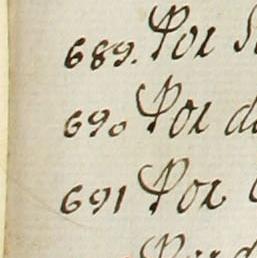 689. Por
690 Por d
691 Por
Por d